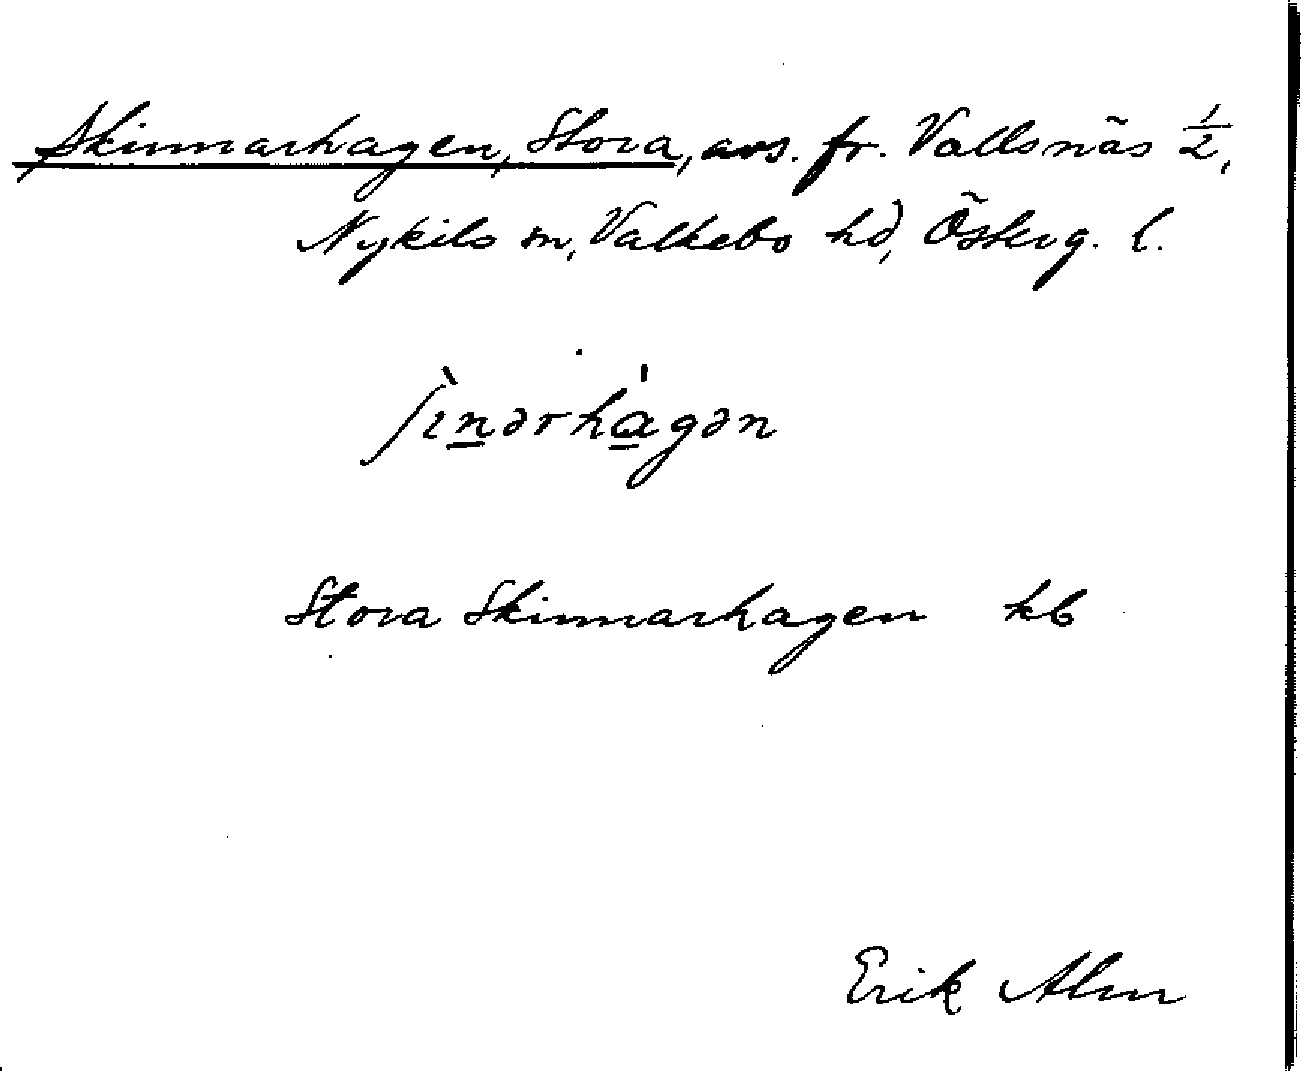 Skinnarhagen, Stora, avs. fr. Vallsnäs 1/2,
Nykils sn, Valkebo hd, Österg. l.
ʃìnərhágən
Stora Skinnarhagen kb
Erik Alm